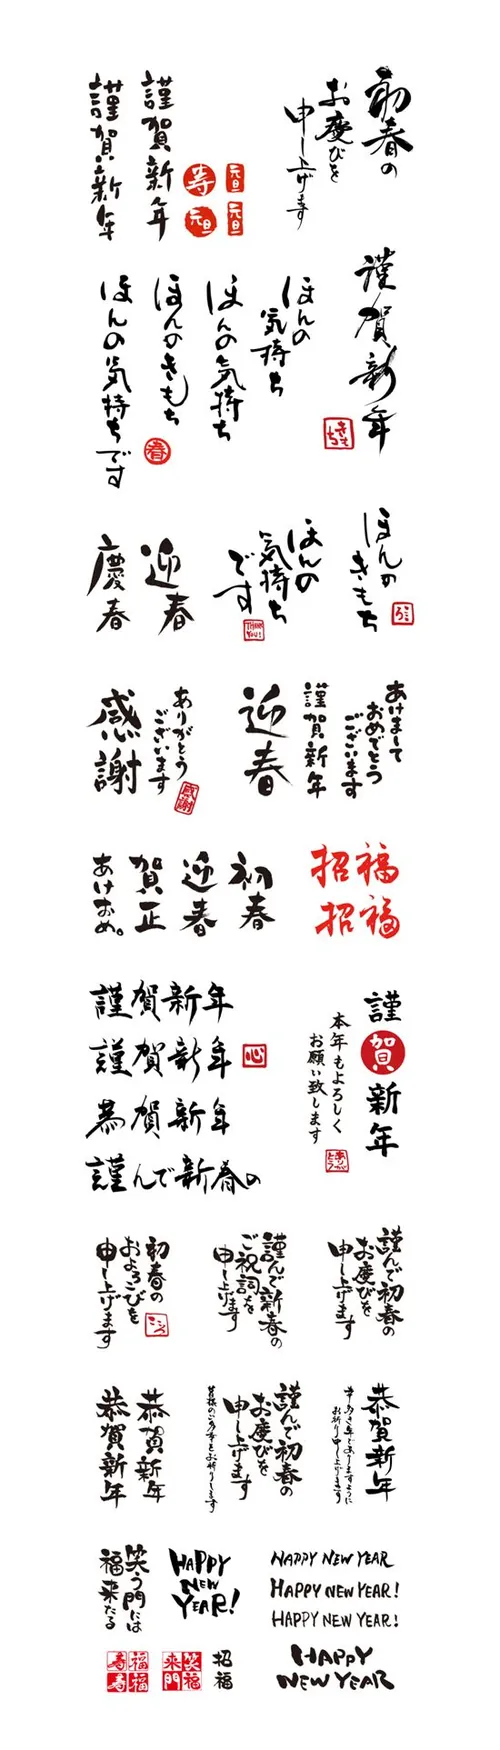 初春の
お慶びを
申し上げます
謹賀新年
謹賀新年
寿
元旦
元旦
元旦
謹賀新年
きもち
ほんの
気持ち
ほんの気持ち
ほんのきもち
春
ほんの気持ちです
ほんの
きもち
ほんの
気持ち
です
THANK
YOU!
迎春
慶春
あけまして
おめでとう
ございます
謹賀新年
迎春
ありがとう
ございます
感謝
感謝
招福
招福
初春
迎春
賀正
あけおめ。
謹賀新年
本年もよろしく
お願い致します
ありがとう
謹賀新年
謹賀新年
心
恭賀新年
謹んで新春の
謹んで初春の
お慶びを
申し上げます
謹んで新春の
ご祝詞を
申し上げます
初春の
およろこびを
申し上げます
恭賀新年
幸多き年でありますように
お祈り申し上げます
謹んで初春の
お慶びを
申し上げます
皆様のご多幸をお祈りします
恭賀新年
恭賀新年
笑う門には
福来たる
HAPPY
NEW
YEAR!
HAPPY NEW YEAR
HAPPY NEW YEAR!
HAPPY NEW YEAR!
HAPPY
NEW YEAR
招福
笑福
来門
福寿
福寿